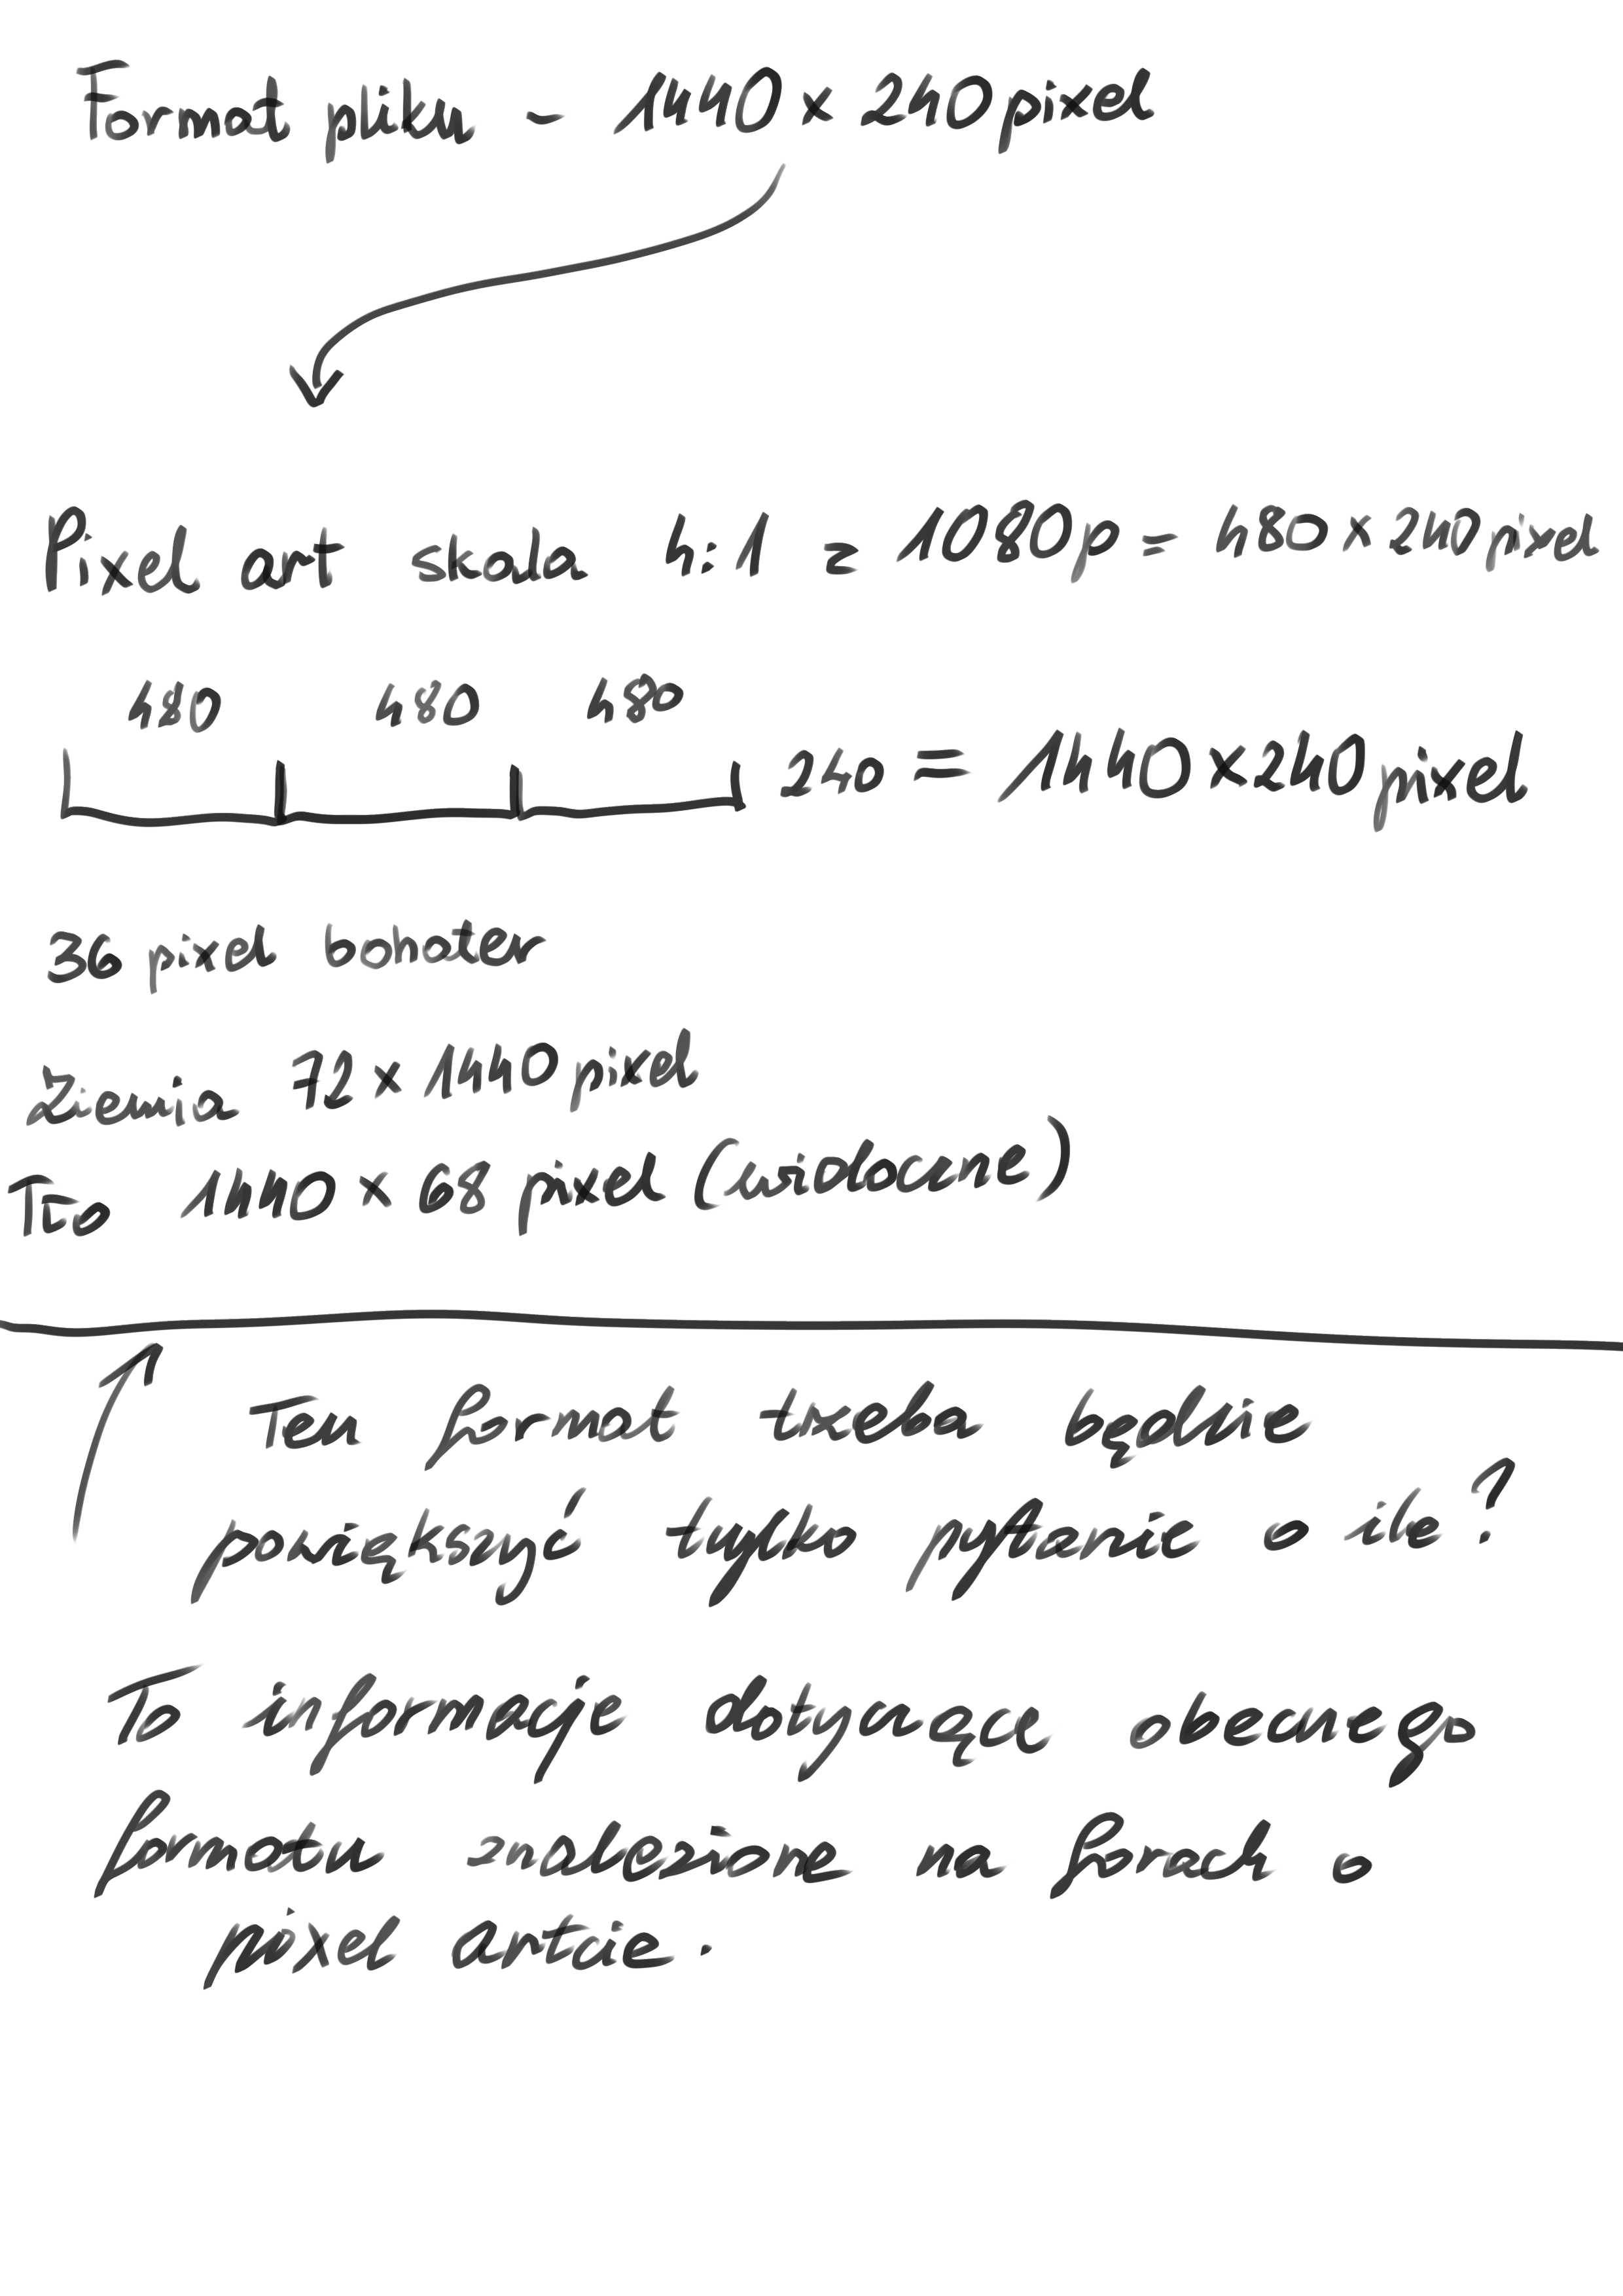 Format pliku - 1440 x 240 pixel
Pixel art skala 4:1 z 1080p = 480 x 240 pixel
480 480 480
240 = 1440x240 pixel
36 pixel bohater
Ziemia 72 x 1440 pixel
Tło 1440 x 68 pixel (widoczne)
Ten format trzeba będzie
powiększyć tylko pytanie o ile?
To informacje dotyczące obecnego
formatu znalezione na forach o
pixel artcie.